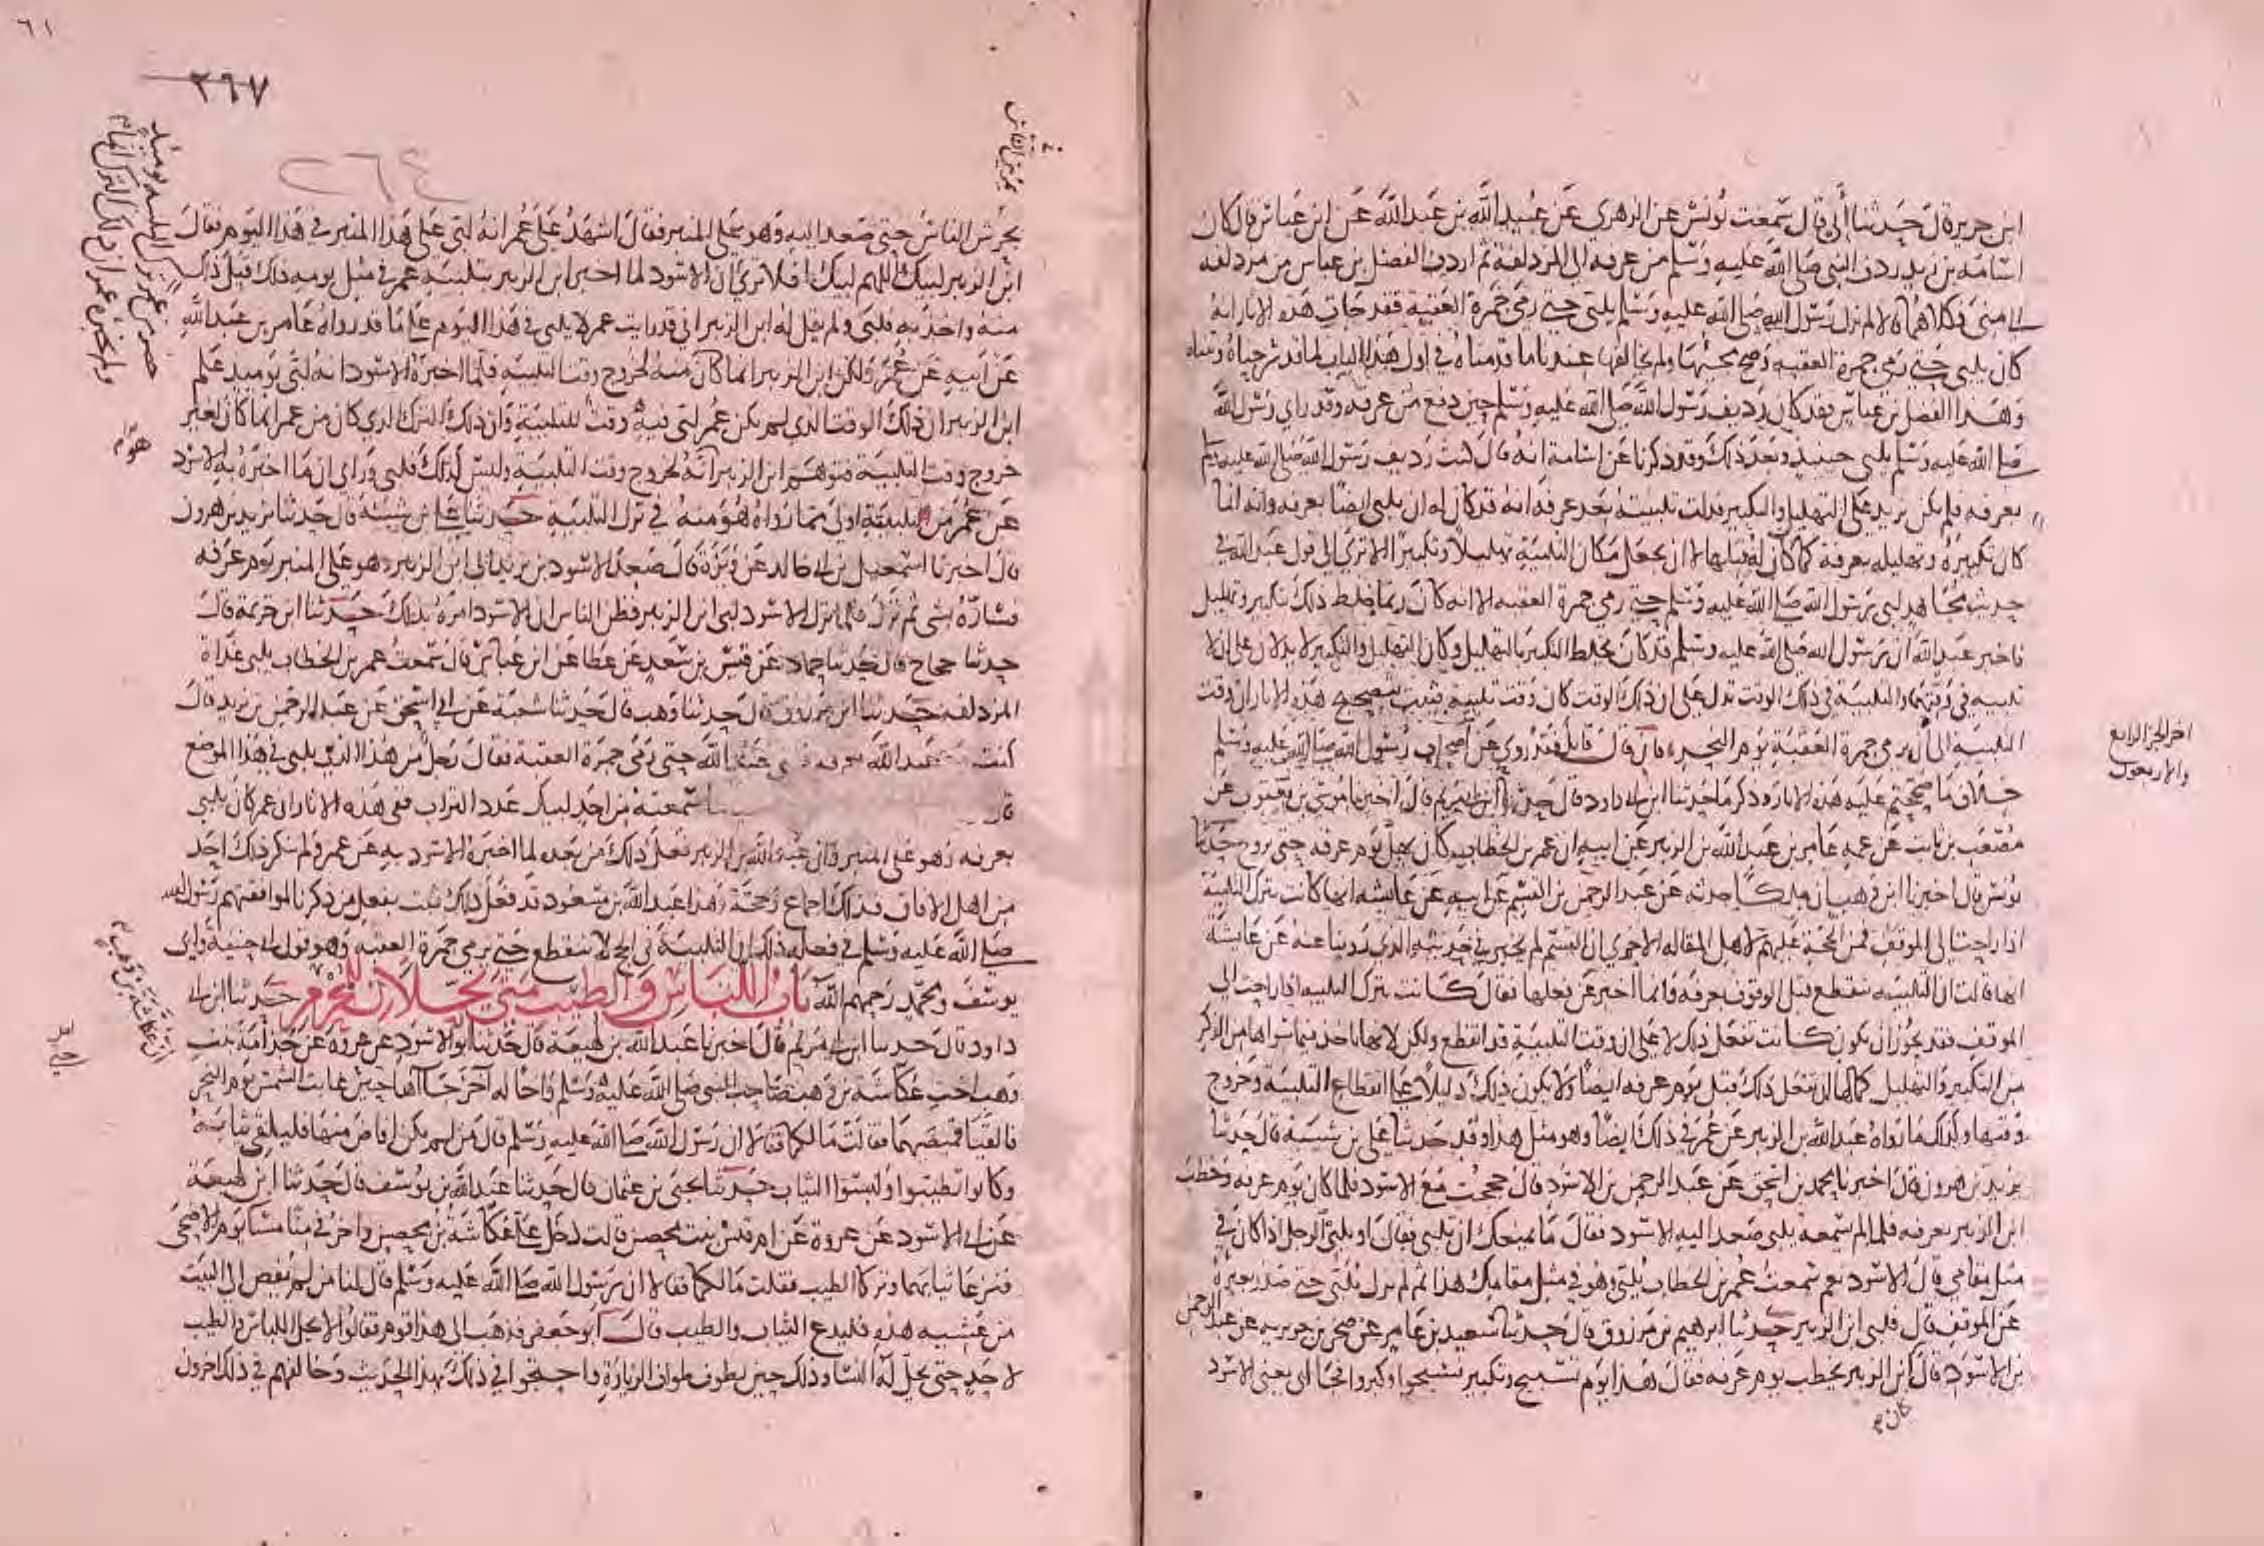 ابن جرير قال حدثنا أبي قال سمعت يونس عن الزهري عن عبيد الله بن عبد الله عن ابن عباس قال كان
اسامة بن زيد ردف النبي صلى الله عليه وسلم من عرفه الى المزدلفة ثم اردف الفضل بن عباس من مزدلفه
الى منى فكلاهما قالا لم يزل رسول الله صلى الله عليه وسلم يلبي حتى رمى جمرة العقبة فقد جات هذه الاثار انه
كان يلبي حتى رمى جمرة العقبه وصح مجيئها ولم يخالفها عندنا ما قدمناه في اول هذا الباب لما قد شرحناه وبيناه
وهذا الفضل بن عباس فقد كان رديف رسول الله صلى الله عليه وسلم حين دفع من عرفه وقد راى رسول الله
صلى الله عليه وسلم يلبي حينيذ وبعد ذلك وقد ذكرنا عن اسامة انه قال كنت رديف رسول الله صلى الله عليه وسلم
بعرفه فلم يكن يزيد على التهليل والتكبير فدلت تلبيته بعد عرفه انه قد كان له ان يلبي ايضا بعرفه وانه انما
كان تكبيره وتهليله بعرفة كما كان له قبلها لا ان يجعل مكان التلبية تهليلا وتكبيرا الا ترى الى قول عبد الله في
حديث مجاهد لبى رسول الله صلى الله عليه وسلم حتى رمى جمرة العقبه الا انه كان ربما خلط ذلك بتكبير وتهليل
فاخبر عبد الله ان رسول الله صلى الله عليه وسلم قد كان يخلط التكبير بالتهليل وكان التهليل والتكبير لا يدلان على ان لا
تلبيه في وقتهما والتلبية في ذلك الوقت تدل على ان ذلك الوقت كان وقت تلبيه فثبت بتصحيح هذه الاثار ان وقت
التلبيه الى ان يرمي جمرة العقبة يوم النحر فان قال قايل فقد روي عن اصحاب رسول الله صلى الله عليه وسلم
خلاف ما صححتم عليه هذه الاثار وذكر ما حدثنا ابن ابي داود قال حدثنا ابن ابي مريم قال اخبرنا موسى بن يعقوب عن
مصعب بن ثابت عن عمه عامر بن عبد الله بن الزبير عن ابيه ان عمر بن الخطاب كان يهل يوم عرفه حتى يروح حدثنا
يونس قال اخبرنا ابن وهب ان مالكا حدثه عن عبد الرحمن بن القسم عن ابيه عن عايشه انها كانت تترك التلبية
اذا راحت الى الموقف فمن الحجة عليهم لاهل المقاله الاخرى ان القسم لم يخبر في حديثه الذي روينا عنه عن عايشة
انها قالت ان التلبيه تنقطع قبل الوقوف بعرفة فانما اخبر عن فعلها فقال كانت تترك التلبيه اذا راحت الى
الموقف فقد يجوز ان تكون كانت تفعل ذلك لا على ان وقت التلبية قد انقطع ولكن لانها تاخذ فيما سواها من الذكر
من التكبير والتهليل كما لها ان تفعل ذلك قبل يوم عرفه ايضا ولا يكون ذلك دليلا على انقطاع التلبية وخروج
وقتها وكذلك ما رواه عبد الله بن الزبير عن عمر في ذلك ايضا وهو مثل هذا وقد حدثنا علي بن شيبة قال حدثنا
يزيد بن هرون قال اخبرنا محمد بن اسحق عن عبد الرحمن بن الاسود قال حججت مع الاسود فلما كان يوم عرفه وخطب
ابن الزبير بعرفه فلما لم يسمعه يلبي صعد اليه الاسود فقال ما يمنعك ان تلبي فقال او يلبي الرجل اذا كان في
مثل مقامي قال الاسود نعم سمعت عمر بن الخطاب يلبي وهو في مثل مقامك هذا ثم لم يزل يلبي حتى صدر بعيره
عن الموقف قال فلبى ابن الزبير حدثنا ابرهيم بن مرزوق قال حدثنا سعيد بن عامر عن صخر بن جويريه عن عبد الرحمن
بن الاسود قال كان ابن الزبير يخطب يوم عرفه فقال هذا يوم تسبيح وتكبير فسبحوا وكبروا فجا ابي يعني الاسود
كان
اخر الجز الرابع
والاربعون
٦١
٢٦٧
٢٦٤
يحرش الناس حتى صعد اليه وهو على المنبر فقال اشهد على عمر انه لبى على هذا المنبر في هذا اليوم فقال
ابن الزبير لبيك اللهم لبيك افلا ترى ان الاسود لما اخبر ابن الزبير بتلبية عمر في مثل يومه ذلك قبل ذلك
منه واخذ به فلبى ولم يقل له ابن الزبير اني قد رايت عمر لا يلبي في هذا اليوم على ما قد رواه عامر بن عبد الله
عن ابيه عن عمر ولكن ابن الزبير انما كان منه لخروج وقت التلبيه فلما اخبره الاسود انه لبى يوميذ علم
ابن الزبير ان ذلك الوقت الذي لم يكن عمر لبى فيه وقت للتلبية وان ذلك الترك الذي كان من عمر انما كان لغير
خروج وقت التلبية فتوهم ابن الزبير انه لخروج وقت التلبية وليس كذلك فلبى وراى ان ما اخبره به الاسود
عن عمر من التلبية اولى مما رواه هو منه في ترك التلبية حدثنا علي بن شيبة قال حدثنا يزيد بن هرون
قال اخبرنا اسمعيل بن ابي خالد عن وبرة قال صعد الاسود بن يزيد الى ابن الزبير وهو على المنبر يوم عرفه
فساره بشي ثم نزل فلما نزل الاسود لبى ابن الزبير فظن الناس ان الاسود امره بذلك حدثنا ابن خزيمة قال
حدثنا حجاج قال حدثنا حماد عن قيس بن سعد عن عطا عن ابن عباس قال سمعت عمر بن الخطاب يلبي غداة
المزدلفه حدثنا ابن مرزوق قال حدثنا وهب قال حدثنا شعبة عن ابي اسحق عن عبد الرحمن بن يزيد قال
كنت عبد الله بعرفه عبد الله حتى رمى جمرة العقبة فقال رجل من هذا الذي يلبي في هذا الموضع
قال سمعته من احد لبيك عدد التراب ففي هذه الاثار ان عمر كان يلبي
بعرفه وهو على المنبر وان عبد الله بن الزبير فعل ذلك من بعده لما اخبره الاسود به عن عمر ولم ينكر ذلك احد
من اهل الافاق فذلك اجماع وحجة وهذا عبد الله بن مسعود قد فعل ذلك فثبت بفعل من ذكرنا لموافقتهم رسول الله
صلى الله عليه وسلم في فعله ذلك ان التلبية في الحج لا تنقطع حتى يرمي جمرة العقبه وهو قول ابي حنيفة وابي
يوسف ومحمد رحمهم الله باب اللباس والطيب متى يحلان للمحرم حدثنا ابن ابي
داود قال حدثنا ابن ابي مريم قال اخبرنا عبد الله بن لهيعة قال حدثنا ابو الاسود عن عروة عن جذامة بنت
وهب اخت عكاشة بن وهب صاحب النبي صلى الله عليه وسلم واخا له آخر جاآها حين غابت الشمس يوم النحر
فالقيا قميصهما فقالت ما لكما فقالا ان رسول الله صلى الله عليه وسلم قال من لم يكن افاض منها فليلق ثيابه
وكانوا تطيبوا ولبسوا الثياب حدثنا يحيى بن عثمان قال حدثنا عبد الله بن يوسف قال حدثنا ابن لهيعة
عن ابي الاسود عن عروة عن ام قيس بنت محصن قالت دخل علي عكاشة بن محصن واخر في منا مسا يوم الاضحى
فنزعا ثيابهما وتركا الطيب فقلت ما لكما فقالا ان رسول الله صلى الله عليه وسلم قال لنا من لم يفض الى البيت
من عشيه هذه فليدع الثياب والطيب قال ابو جعفر فذهب الى هذا قوم فقالوا لا يحل اللباس والطيب
لاحد حتى يحل له النسا وذلك حين يطوف طواف الزيارة واحتجوا في ذلك بهذا الحديث وخالفهم في ذلك اخرون
ان عكاشة بن وهب